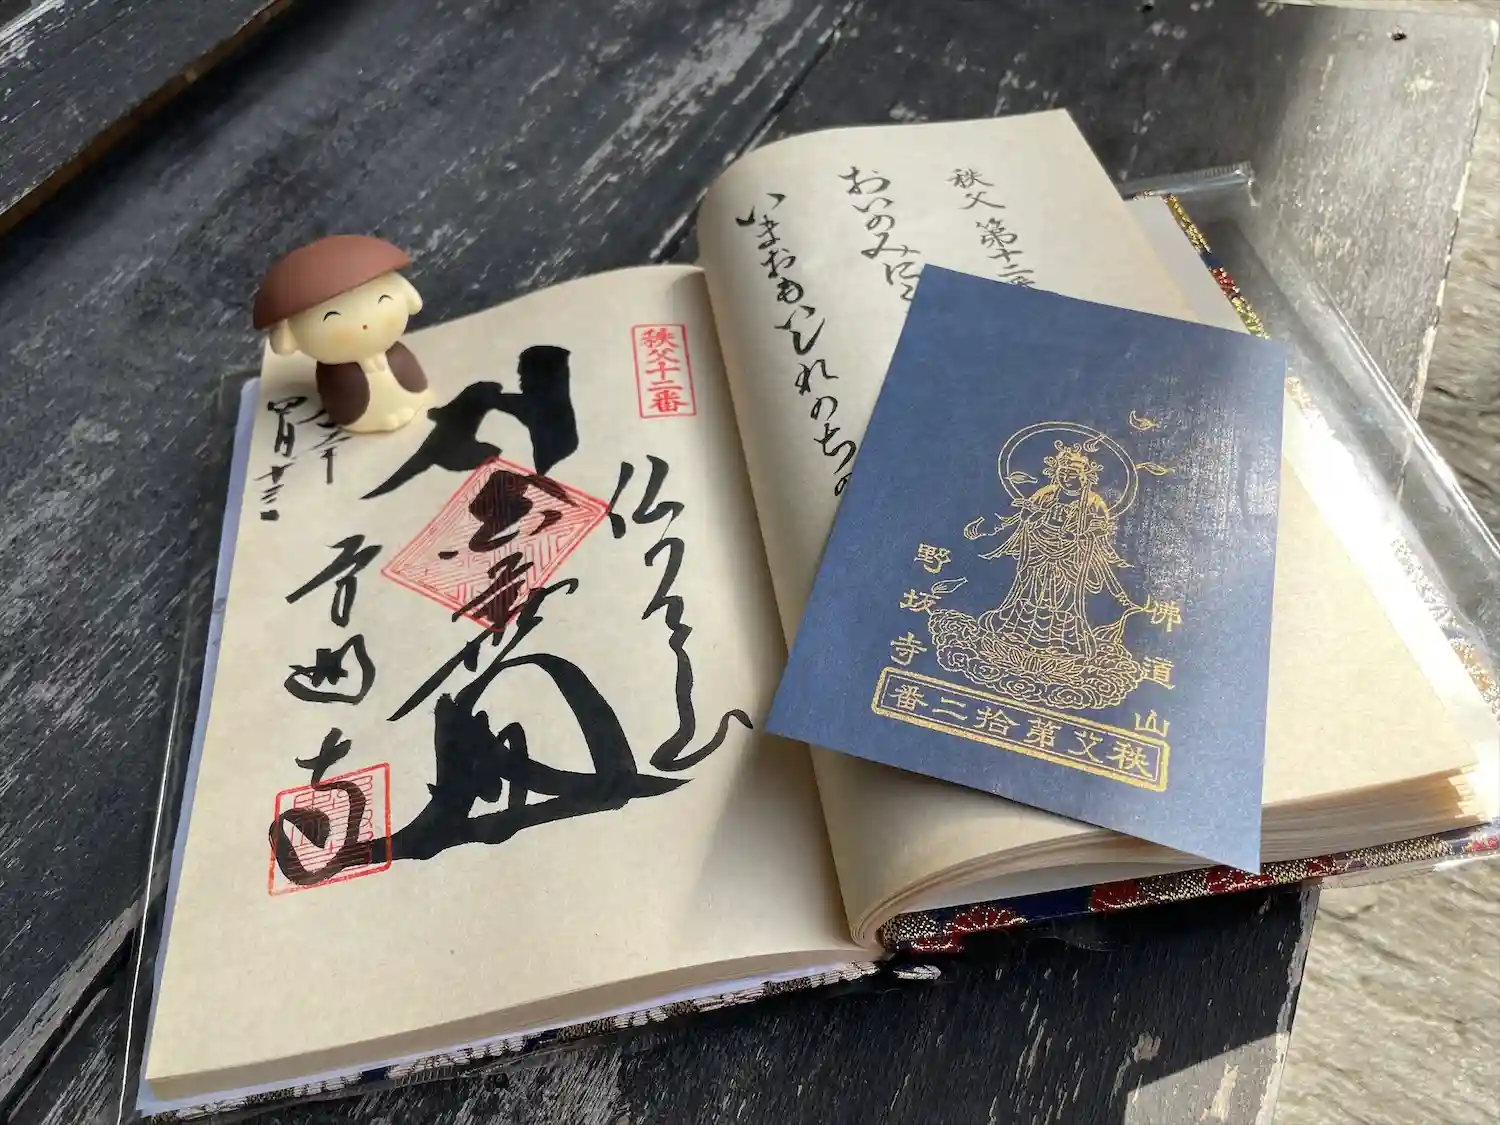 秩父 第十二番
おいのみに
いまおもいしれのちの
秩父十二番
仏道山
野坂寺
四月十三日
佛道山
野坂寺
秩父第拾二番